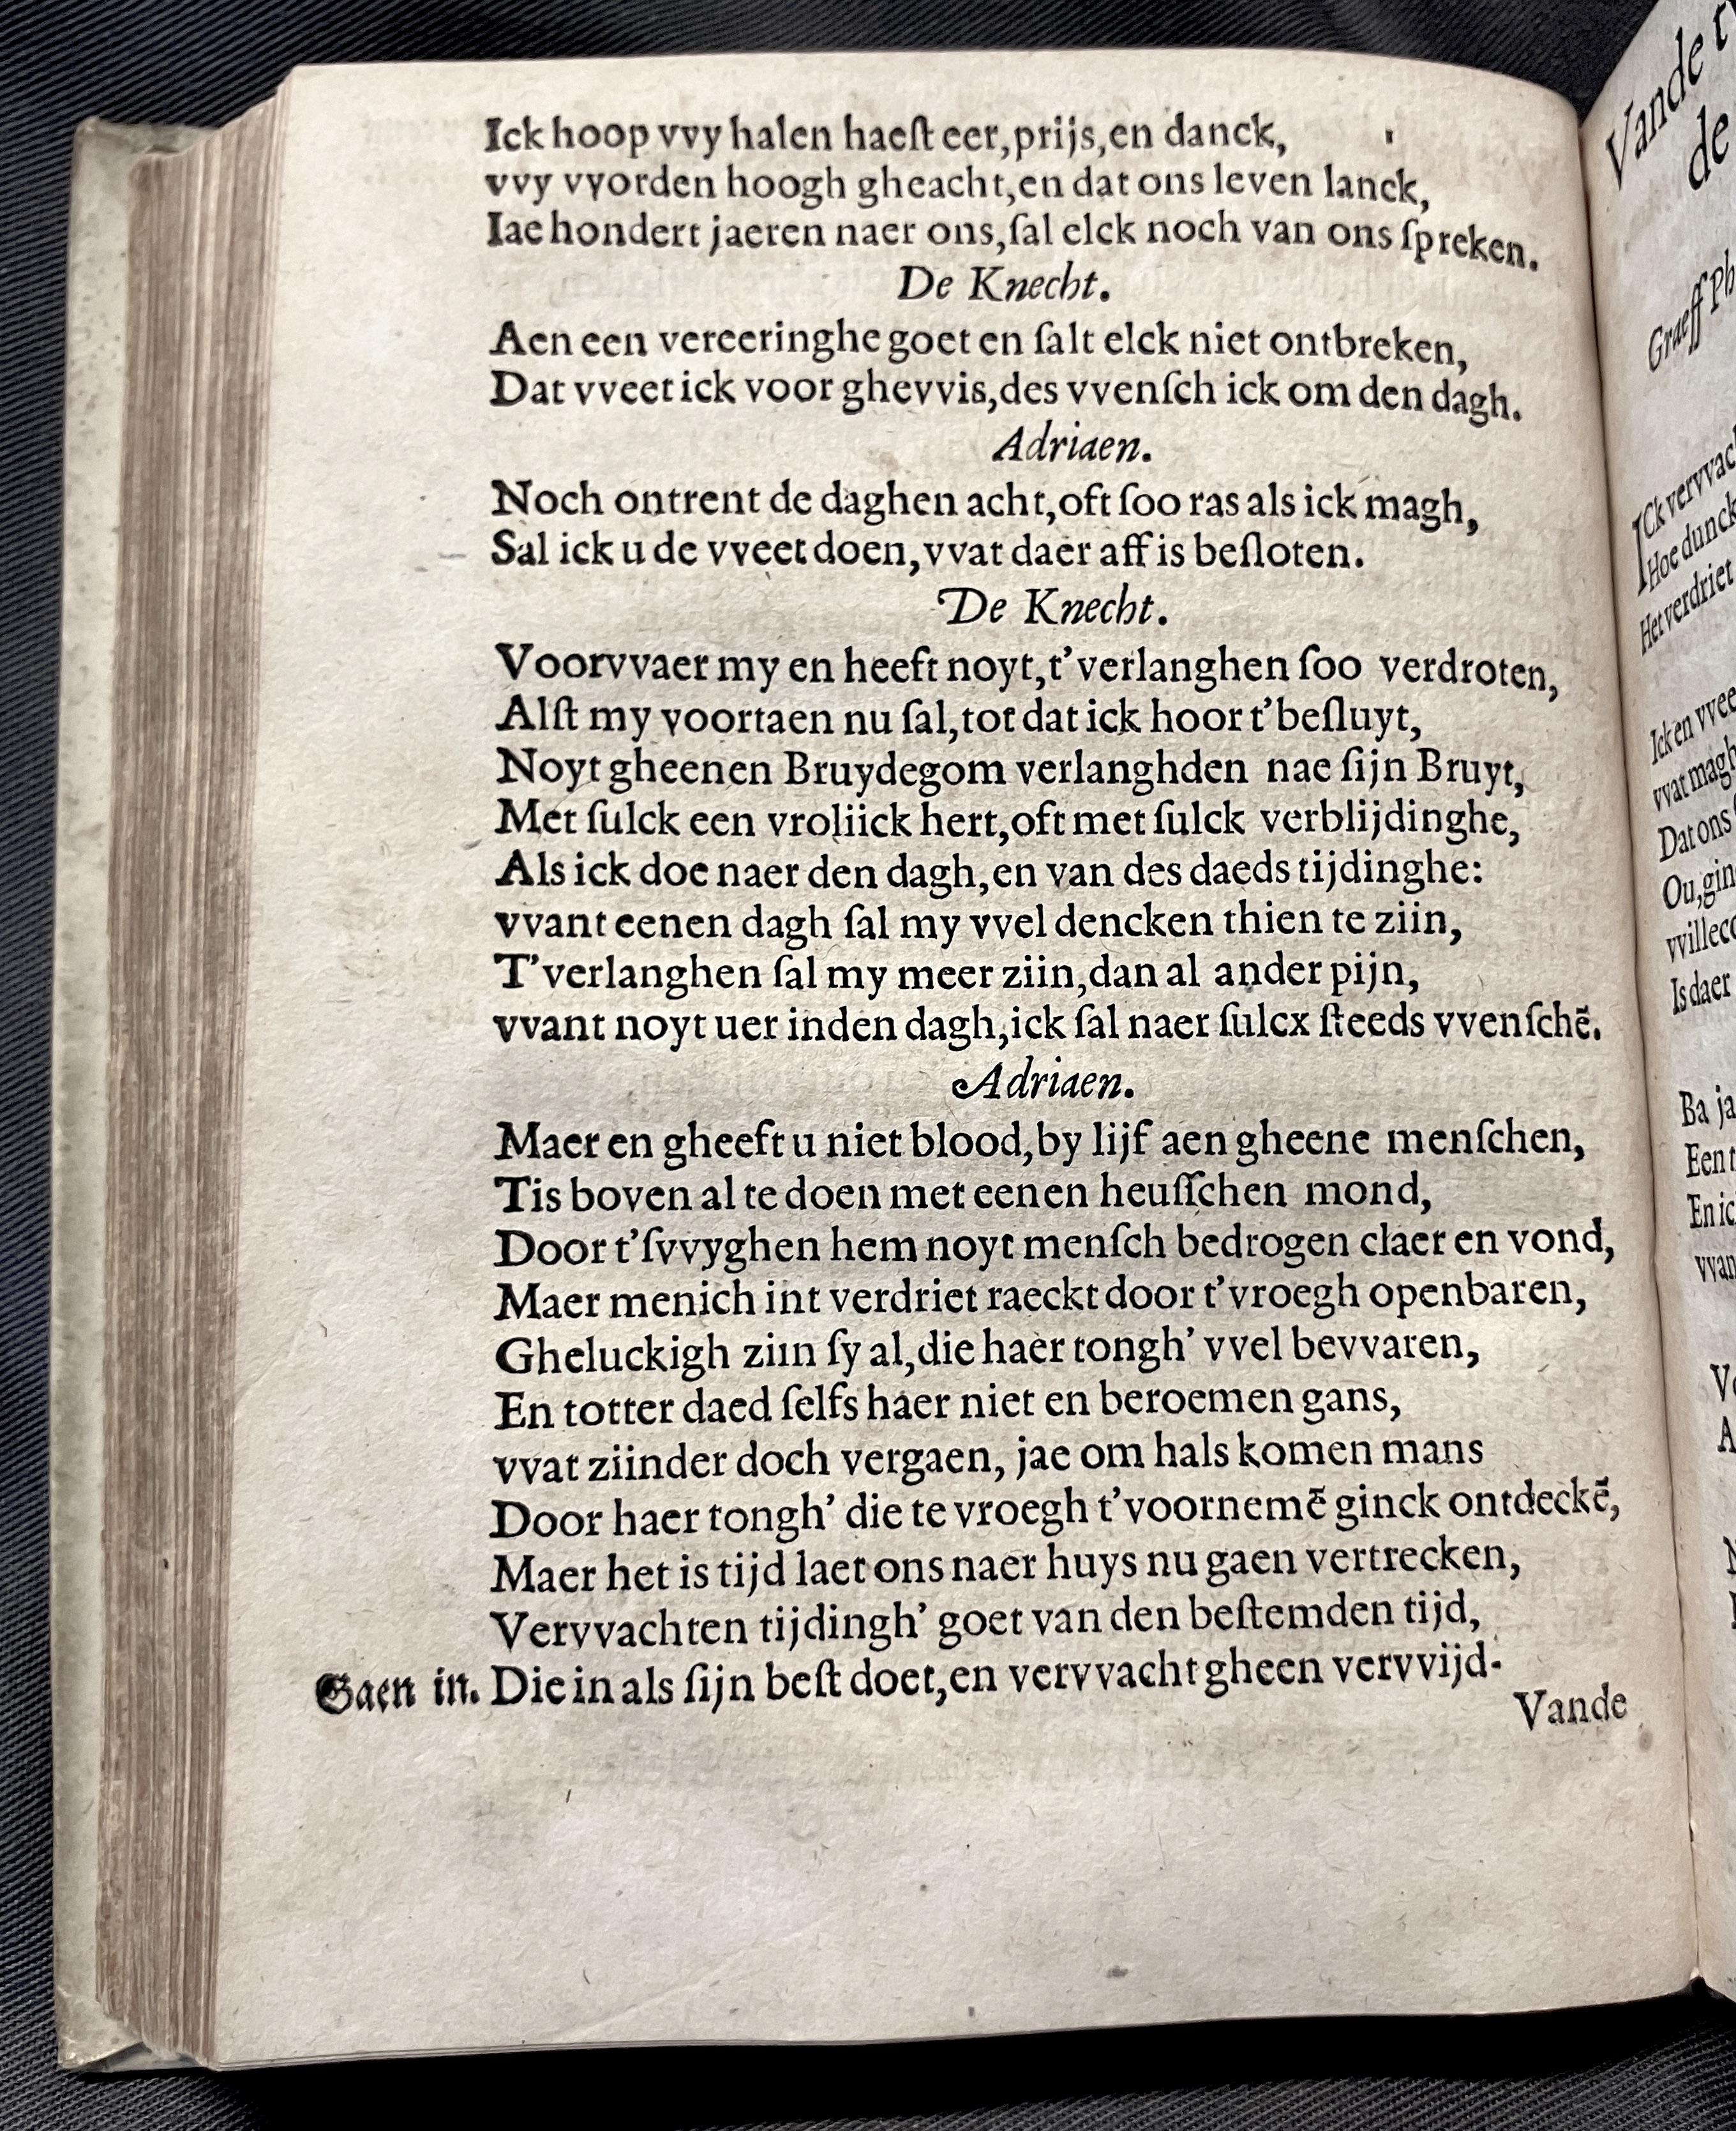 Ick hoop vvy halen haeſt eer,prijs,en danck,
vvy vvorden hoogh gheacht,en dat ons leven lanck,
Iae hondert jaeren naer ons,ſal elck noch van ons ſpreken.
De Knecht.
Aen een vereeringhe goet en ſalt elck niet ontbreken,
Dat vveet ick voor ghevvis,des vvenſch ick om den dagh.
Adriaen.
Noch ontrent de daghen acht,oft ſoo ras als ick magh,
Sal ick u de vveet doen,vvat daer aff is beſloten.
De Knecht.
Voorvvaer my en heeft noyt,t'verlanghen ſoo verdroten,
Alſt my voortaen nu ſal,tot dat ick hoor t'beſluyt,
Noyt gheenen Bruydegom verlanghden nae ſijn Bruyt,
Met ſulck een vroliick hert,oft met ſulck verblijdinghe,
Als ick doe naer den dagh,en van des daeds tijdinghe:
vvant eenen dagh ſal my vvel dencken thien te ziin,
T'verlanghen ſal my meer ziin,dan al ander pijn,
vvant noyt uer inden dagh,ick ſal naer ſulcx ſteeds vvenſchẽ.
Adriaen.
Maer en gheeft u niet blood,by lijf aen gheene menſchen,
Tis boven al te doen met eenen heuſſchen mond,
Door t'ſvvyghen hem noyt menſch bedrogen claer en vond,
Maer menich int verdriet raeckt door t'vroegh openbaren,
Gheluckigh ziin ſy al,die haer tongh' vvel bevvaren,
En totter daed ſelfs haer niet en beroemen gans,
vvat ziinder doch vergaen, jae om hals komen mans
Door haer tongh' die te vroegh t'voornemẽ ginck ontdeckẽ,
Maer het is tijd laet ons naer huys nu gaen vertrecken,
Vervvachten tijdingh' goet van den beſtemden tijd,
Gaen in. Die in als ſijn beſt doet,en vervvacht gheen vervvijd.
Vande
Vande
de
Graeff
ICk
Hoe
Het verdriet
Ick en
vvat
Dat ons
Is daer
Ba
En